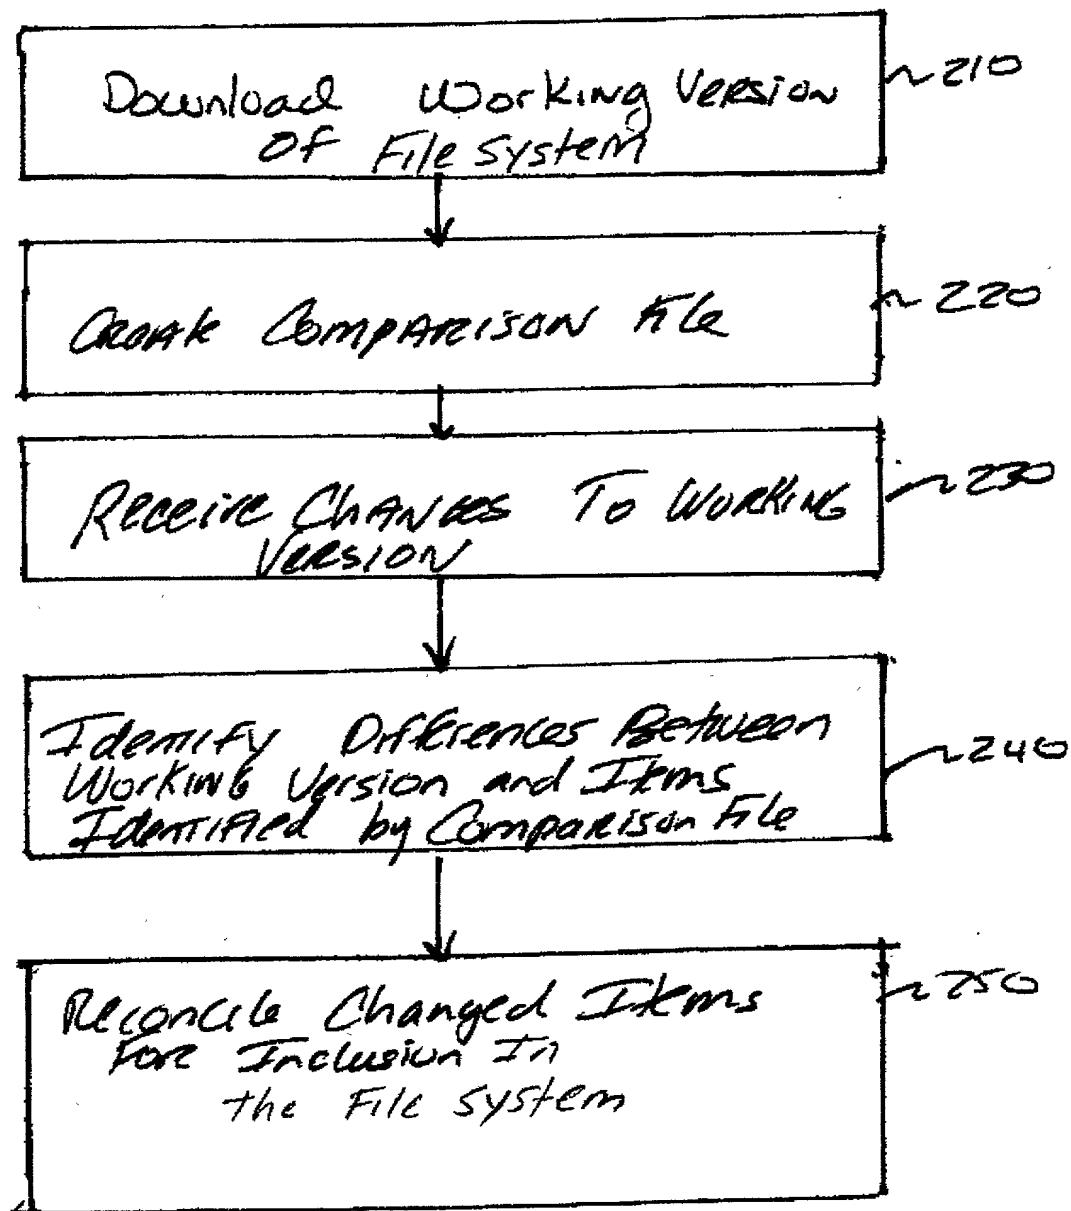 Download Working Version
Of File System
210
Create Comparison File
220
Receive Changes To Working
Version
230
Identify Differences Between
Working Version and Items
Identified by Comparison File
240
Reconcile Changed Items
For Inclusion In
the File System
250